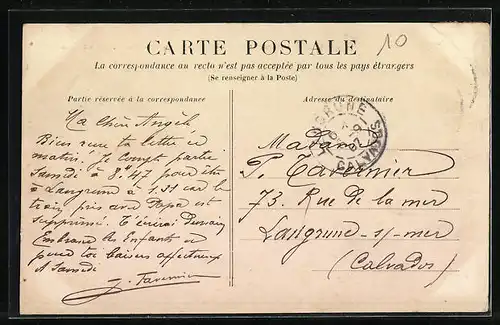 CARTE POSTALE
10
La correspondance au recto n'est pas acceptée par tous les pays étrangers
(Se renseigner à la Poste)
Partie réservée à la correspondance
Adresse du destinataire
Ma chère Angèle
Bien reçu ta lettre ce
matin. Je compte partir
Samedi à 8.47 pour être
à Langrune à 1.51 car le
train pris avec Papa est
supprimé. T'écrirai demain
Embrasse les Enfants et
pour toi baisers affectueux
A Samedi
J. Tavernier
LANGRUNE
CALVADOS
Madame
P. Tavernier
73, Rue de la mer
Langrune-s/-mer
(Calvados)